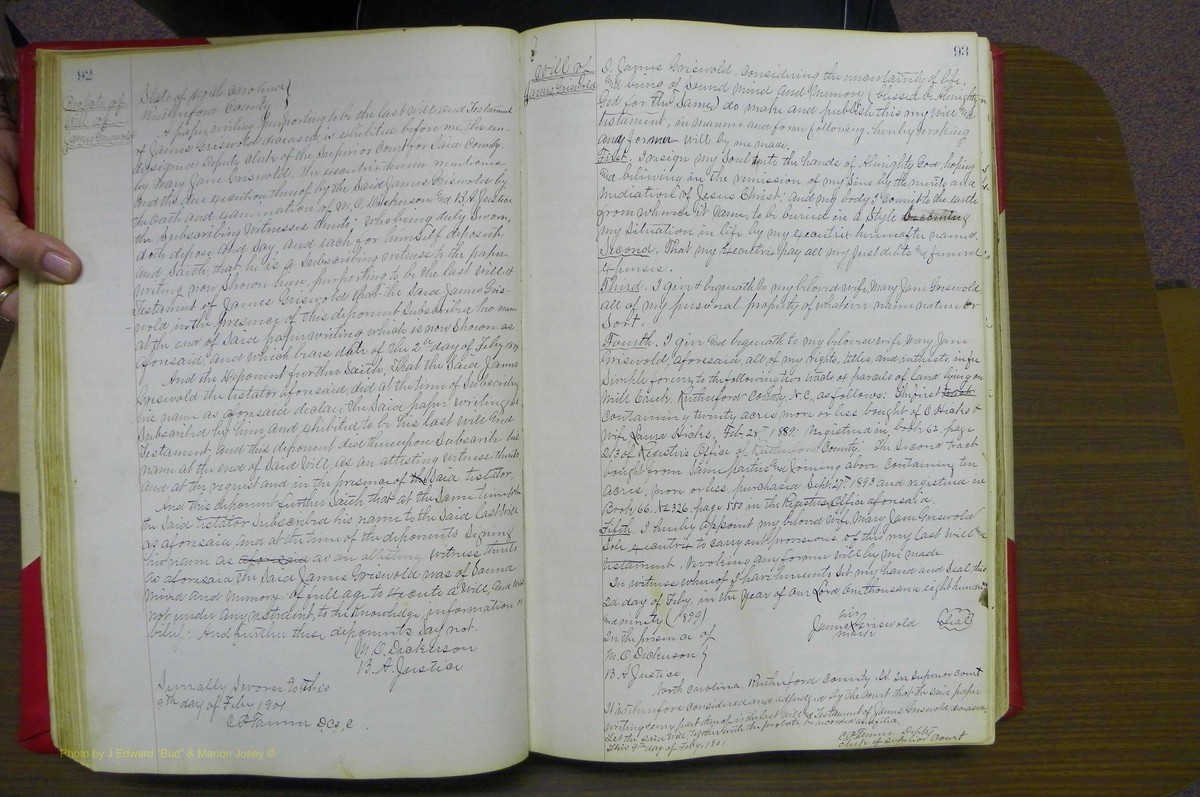 92
Probate of
Will of
James Griswold
State of North Carolina }
Rutherford County
A paper writing purporting to be the last will and Testament
of James Griswold deceased, is exhibited before me, the un-
dersigned Deputy Clerk of the Superior Court for Said County,
by Mary Jane Griswold the executrix therein mentioned
and the due execution thereof by the Said James Griswold by
the oath and examination of M. O. Dickerson and B. A. Justice
the Subscribing Witnesses thereto. Who being duly Sworn,
doth depose and Say, and each for himself deposeth
and Saith, that he is a Subscribing witness to the paper
writing now Shown him, purporting to be the last will &
Testament of James Griswold that the Said James Gris-
wold in the presence of this deponent Subscribed his name
at the end of Said paper writing which is now Shown as
aforesaid and which bears date of the 2nd day of Feby
And the Deponent further Saith, That the Said James
Griswold the testator aforesaid did at the time of Subscribing
his name as aforesaid declare the Said paper writing so
Subscribed by him and exhibited to be his last will and
Testament, and this deponent did thereupon Subscribe his
name at the end of Said Will, as an attesting witness thereto
and at the request and in the presence of the Said testator.
And this deponent further Saith, that at the Same time
the Said testator Subscribed his name to the Said last will
as aforesaid and at the time of the deponents Signing
his name as aforesaid as an attesting witness thereto
as aforesaid the Said James Griswold was of Sound
mind and memory, of full age to execute a Will, and was
not under any restraint, to the Knowledge, information or
belief. And further these deponents Say not.
M. O. Dickerson
B. A. Justice
Severally Sworn to this
9th day of Feby 1901
D.C.S.C.
93
Will of
James Griswold
I, James Griswold, Considering the uncertainty of life,
and being of Sound Mind and Memory (blessed be Almighty
God for the Same) do make and publish this my Will and
testament, in manner and form following, hereby revoking
any former Will by me made.
First. I resign my Soul into the hands of Almighty God, hoping
and believing in the remission of my Sins by the merits and
mediation of Jesus Christ; and my body I commit to the earth
from whence it came, to be buried in a Style becoming
my Situation in life by my executrix hereinafter named.
Second. That my Executrix Pay all my Just debts and funeral
Expenses.
Third. I give & bequeath to my beloved wife Mary Jane Griswold
all of my personal property of whatever name nature or
Sort.
Fourth. I give and bequeath to my beloved wife Mary Jane
Griswold, aforesaid, all of my rights, titles, and interests, in fee
Simple forever, to the following two tracts or parcels of land, lying on
Mill Creek, Rutherford County, N.C., as follows: The first tract
containing twenty acres more or less bought of C Hicks &
wife Laura Hicks, Feb. 28th 1889. Registered in book 62. page
213 of Registers Office of Rutherford County. The Second tract
bought from Same parties and Joining above, containing ten
acres, more or less, purchased Sept. 27th 1893 and registered in
Book 66. No 326. page 550 in the Registers Office aforesaid.
Fifth. I hereby appoint my beloved wife, Mary Jane Griswold
Sole executrix to carry out provisions of this my last Will and
testament. Revoking any former Will by me made.
In witness whereof I have hereunto Set my hand and Seal, this
2nd day of Feby, in the Year of Our Lord, one thousand eight hundred
and ninety (1899)
In the presence of
M. O. Dickerson }
B. A. Justice
his
James X Griswold (Seal)
mark
North Carolina, Rutherford County. In Superior Court
It is therefore Considered and adjudged by the Court that the Said paper
writing and every part thereof is the last Will & Testament of James Griswold deceased,
let the Said Will, together with the probate be recorded and filed.
This 9th day of Feby, 1901
Deputy
Clerk of Superior Court
Photo by J Edward "Bud" & Marion Josey ©